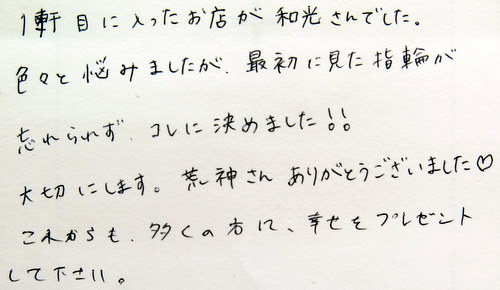 1軒目に入ったお店が和光さんでした。
色々と悩みましたが、最初に見た指輪が
忘れられず、コレに決めました!!
大切にします。荒神さんありがとうございました♡
これからも、多くの方に、幸せをプレゼント
して下さい。